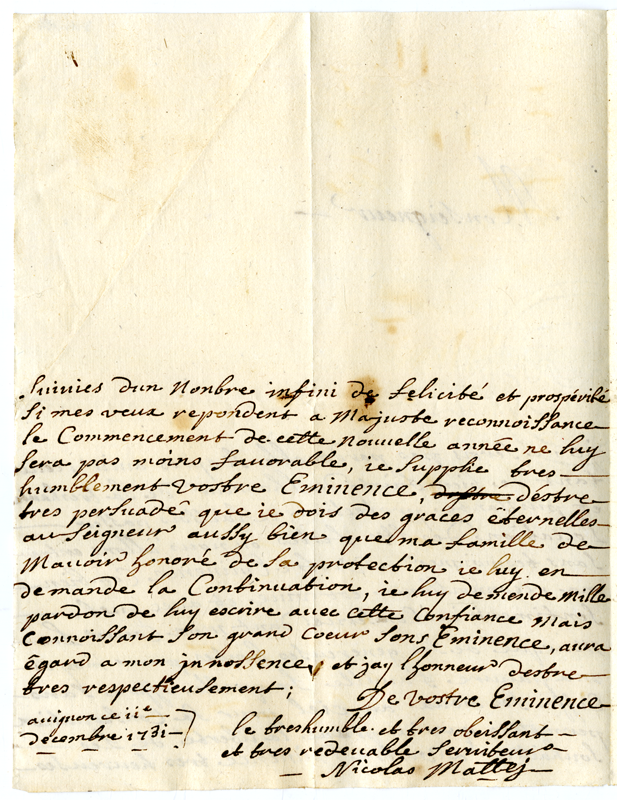 Suivies dun Nonbre infini de felicité et prospérité
Si mes veux repondent a Majuste reconnoissance
le Commencement de cette Nouvelle année ne luy
sera pas moins favorable, ie supplie tres
humblement Vostre Eminence, déstre
tres persuadê que ie dois des graces êternelles
au Seigneur aussy bien que ma famille de
Mavoir honoré de sa protection ie luy en
demande la Continuation, ie luy demende Mille
pardon de luy escrire avec cette Confiance Mais
Connoissant son grand Coeur sons Eminence, aura
êgard a mon jnnossence, et jay lhonneur destre
tres respectieusement;
De vostre Eminence
avignon ce iie
decembre 1731
le treshumble et tres obeissant
et tres redevable serviteur
Nicolas Mattej
Monseigneur